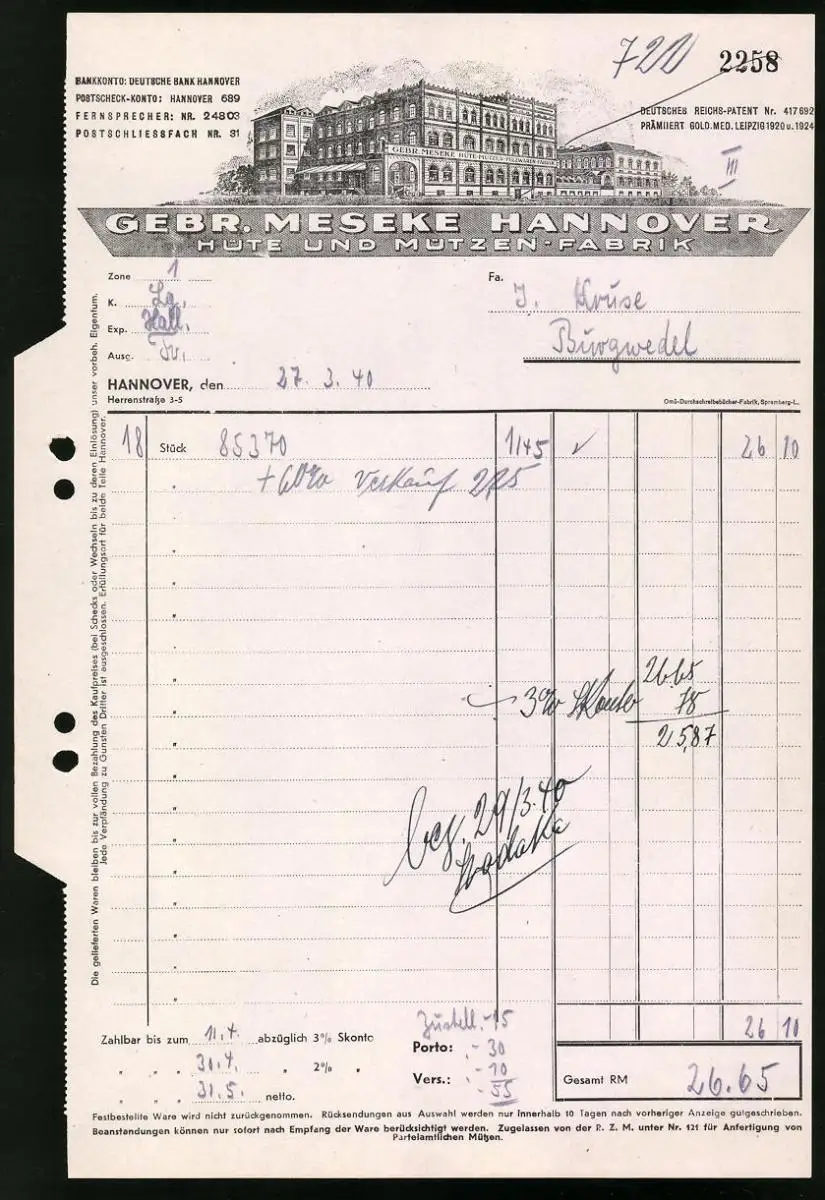 722
2258
BANKKONTO: DEUTSCHE BANK HANNOVER
POSTSCHECK-KONTO: HANNOVER 689
FERNSPRECHER: NR. 24803
POSTSCHLIESSFACH NR. 81
DEUTSCHES REICHS-PATENT Nr. 417692
PRÄMIIERT GOLD. MED. LEIPZIG 1920 u. 1924
III
GEBR. MESEKE HÜTE-MÜTZEN-PELZWAREN-FABRIK
GEBR. MESEKE HANNOVER
HÜTE UND MÜTZEN-FABRIK
Zone 1
K. Lg.
Exp. Hall.
Ausg.
Fa. J. Kruse
Burgwedel
HANNOVER, den 27. 3. 40
Herrenstraße 3-5
Omü-Durchschreibebücher-Fabrik, Spremberg-L.
18 Stück 85370 1/45 ✓ 26 10
+ 60% Verkauf 2/25
2665
3% Skonto 78
25,87
bez. 29/3.40
26 10
Zahlbar bis zum 11.4. abzüglich 3% Skonto
" " " 30.4. " 2% "
" " " 31.5. netto.
Zustell. -.15
Porto: -.30
Vers.: -.10
-.55
Gesamt RM 26.65
Die gelieferten Waren bleiben bis zur vollen Bezahlung des Kaufpreises (bei Schecks oder Wechseln bis zu deren Einlösung) unser vorbeh. Eigentum.
Jede Verpfändung zu Gunsten Dritter ist ausgeschlossen. Erfüllungsort für beide Teile Hannover.
Festbestellte Ware wird nicht zurückgenommen. Rücksendungen aus Auswahl werden nur innerhalb 10 Tagen nach vorheriger Anzeige gutgeschrieben.
Beanstandungen können nur sofort nach Empfang der Ware berücksichtigt werden. Zugelassen von der R. Z. M. unter Nr. 121 für Anfertigung von
Parteiamtlichen Mützen.